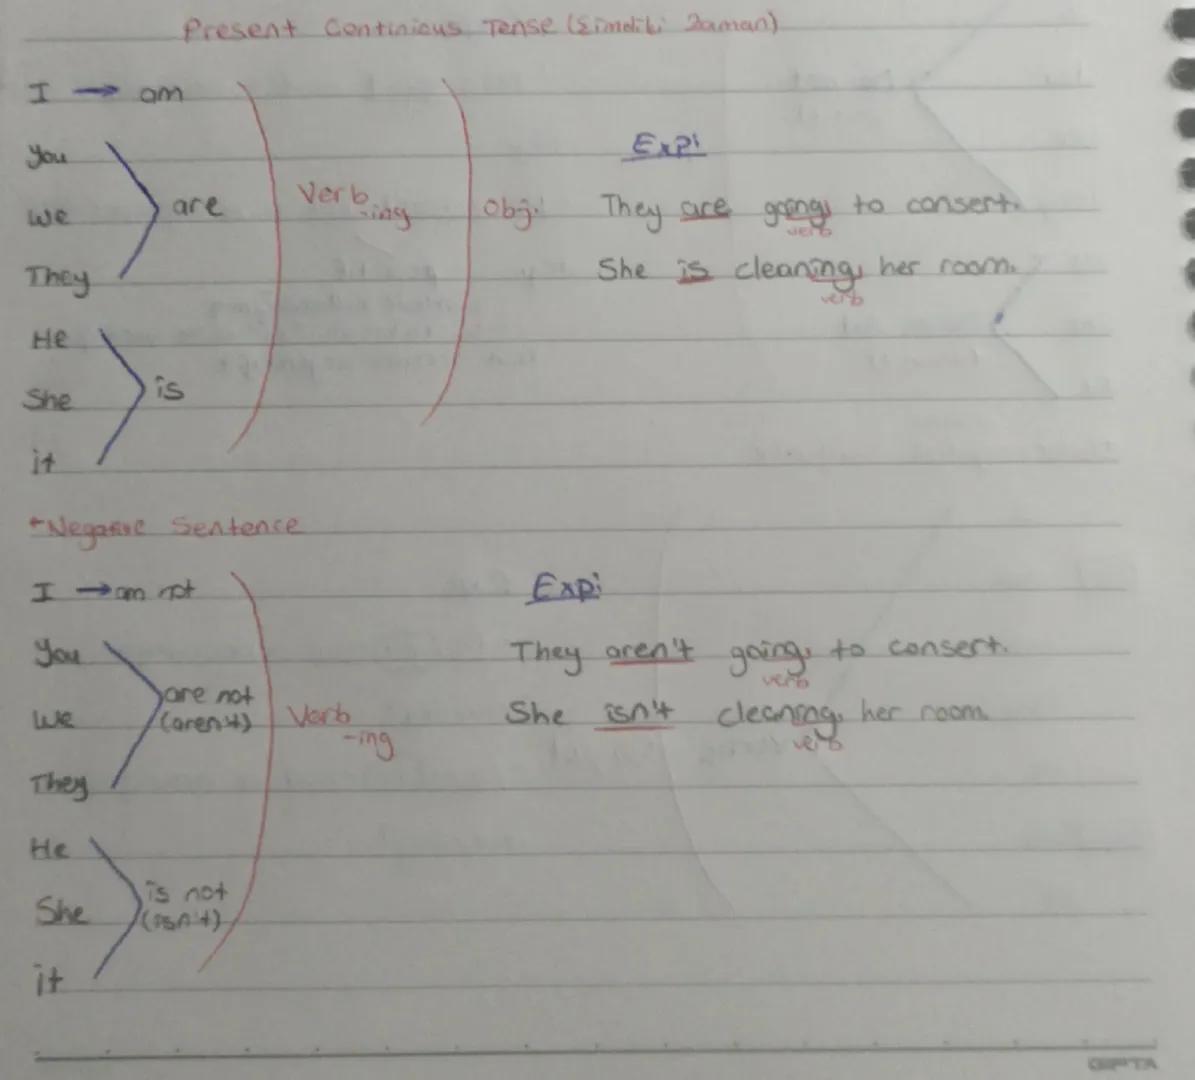 Present Continious Tense (Şimdiki Zaman)
I → am
You
We
They
are
He
She
it
is
Verb
-ing
Obj.
Exp:
They are going to consert.
verb
She is cleaning her room.
verb
*Negative Sentence
I → am not
You
We
They
are not
(aren't)
He
She
it
is not
(isn't)
Verb
-ing
Exp:
They aren't going to consert.
verb
She isn't cleaning her room
verb
GIPTA